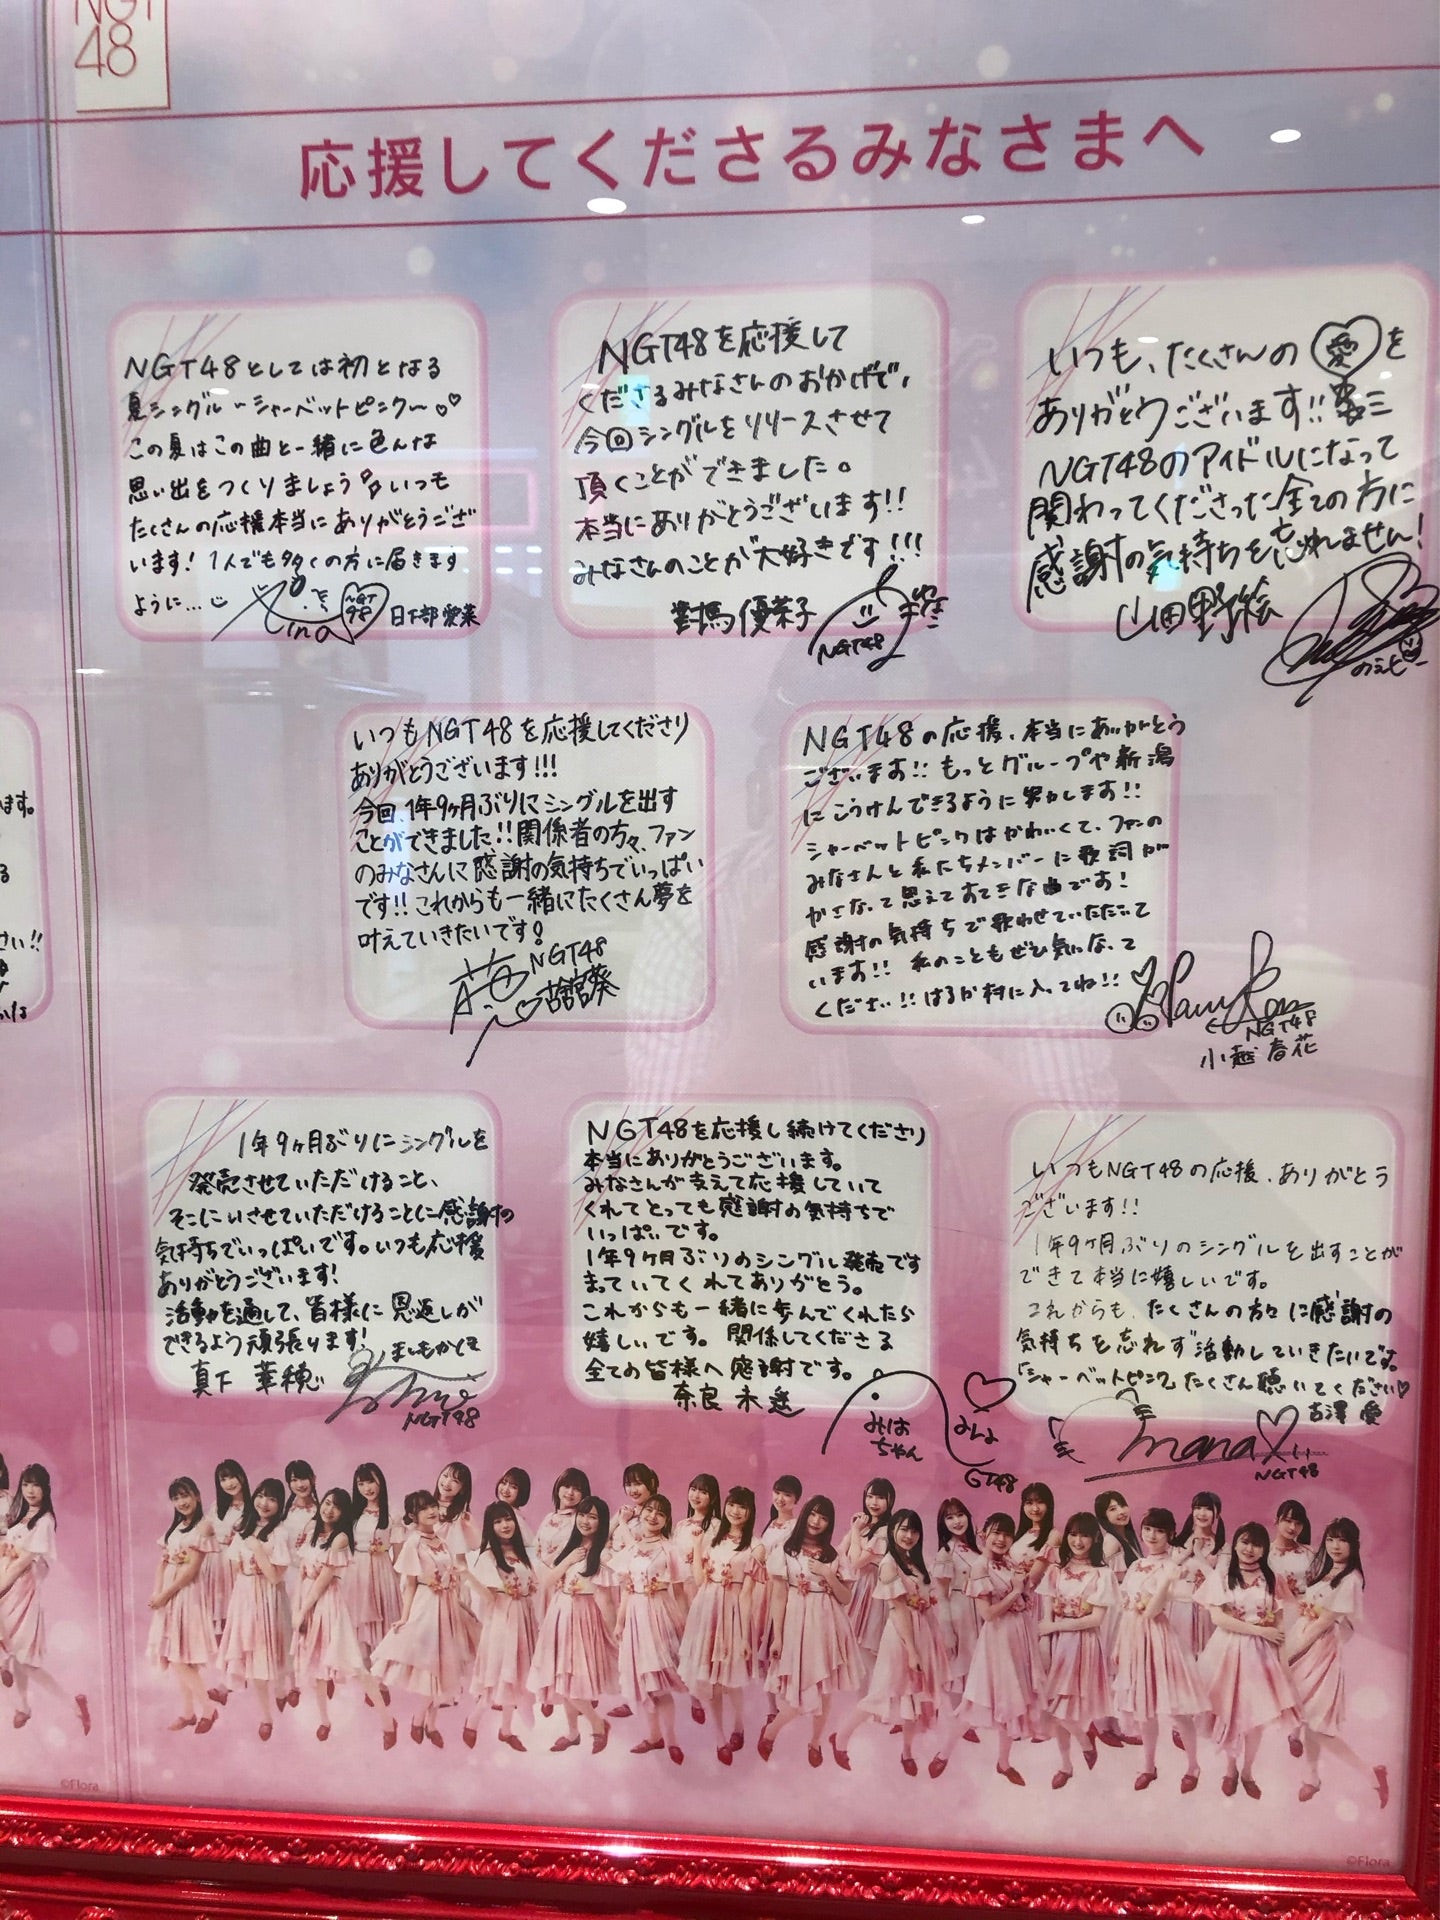 NGT
48
応援してくださるみなさまへ
NGT48としては初となる
夏シングル〜シャーベットピンク〜♡♡
この夏はこの曲と一緒に色んな
思い出をつくりましょう いつも
たくさんの応援本当にありがとうござ
います! 1人でも多くの方に届きます
ように…
NGT48
日下部愛菜
NGT48を応援して
くださるみなさんのおかげで、
今回シングルをリリースさせて
頂くことができました。
本当にありがとうございます!!
みなさんのことが大好きです!!!
對馬優菜子
NGT48
いつも、たくさんの愛を
ありがとうございます!!
NGT48のアイドルになって
関わってくださった全ての方に
感謝の気持ちを忘れません!
山田野絵
のえぴー
いつもNGT48を応援してくださり
ありがとうございます!!!
今回、1年9ヶ月ぶりにシングルを出す
ことができました!!関係者の方々、ファン
のみなさんに感謝の気持ちでいっぱい
です!! これからも一緒にたくさん夢を
叶えていきたいです!
NGT48
古舘葵
NGT48の応援、本当にありがとう
ございます!! もっとグループや新潟
にこうけんできるように努力します!!
シャーベットピンクはかわいくて、ファンの
みなさんと私たちメンバーに歌詞が
かさなって思えてすてきな曲です!
感謝の気持ちで歌わせていただいて
います!! 私のこともぜひ気になって
ください!! はるか村に入ってね!!
NGT48
小越春花
1年9ヶ月ぶりにシングルを
発売させていただけること、
そこにいさせていただけることに感謝の
気持ちでいっぱいです。いつも応援
ありがとうございます!
活動を通して、皆様に恩返しが
できるよう頑張ります!
真下華穂
ましもかほ
NGT48
NGT48を応援し続けてくださり
本当にありがとうございます。
みなさんが支えて応援していて
くれてとっても感謝の気持ちで
いっぱいです。
1年9ヶ月ぶりのシングル発売です
まっていてくれてありがとう。
これからも一緒に歩んでくれたら
嬉しいです。関係してくださる
全ての皆様へ感謝です。
奈良未遥
みはちゃん
GT48
いつもNGT48の応援、ありがとう
ございます!!
1年9ヶ月ぶりのシングルを出すことが
できて本当に嬉しいです。
これからも、たくさんの方々に感謝の
気持ちを忘れず活動していきたいです。
「シャーベットピンク」たくさん聴いてください♡
古澤愛
mana
NGT48
ます。
る
さい!!
©Flora
©Flora